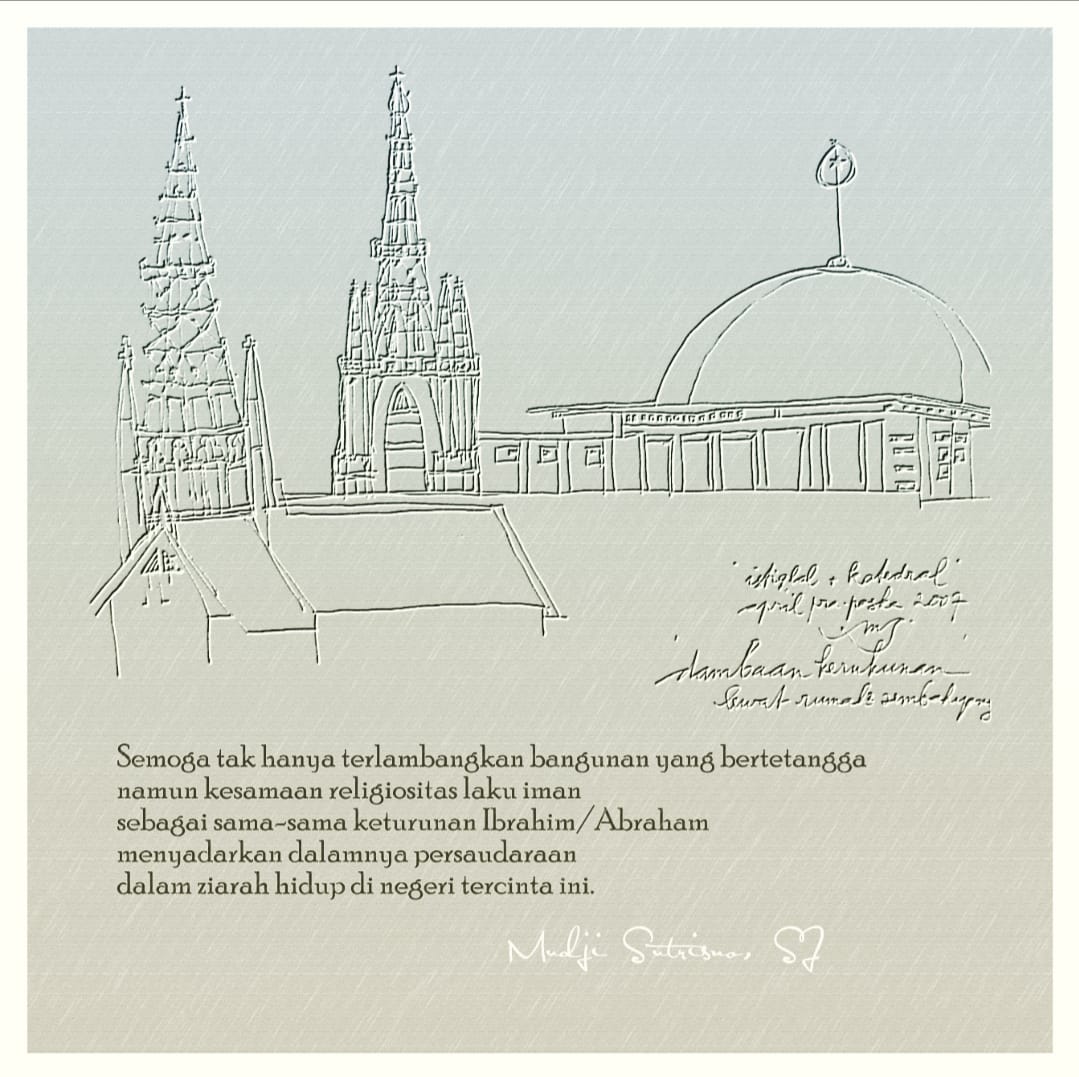 "istiqlal + katedral"
april pra-paska 2007
mJ.
"dambaan kerukunan"
lewat rumah sembahyang
Semoga tak hanya terlambangkan bangunan yang bertetangga
namun kesamaan religiositas laku iman
sebagai sama-sama keturunan Ibrahim/Abraham
menyadarkan dalamnya persaudaraan
dalam ziarah hidup di negeri tercinta ini.
Mudji Sutrisno, SJ